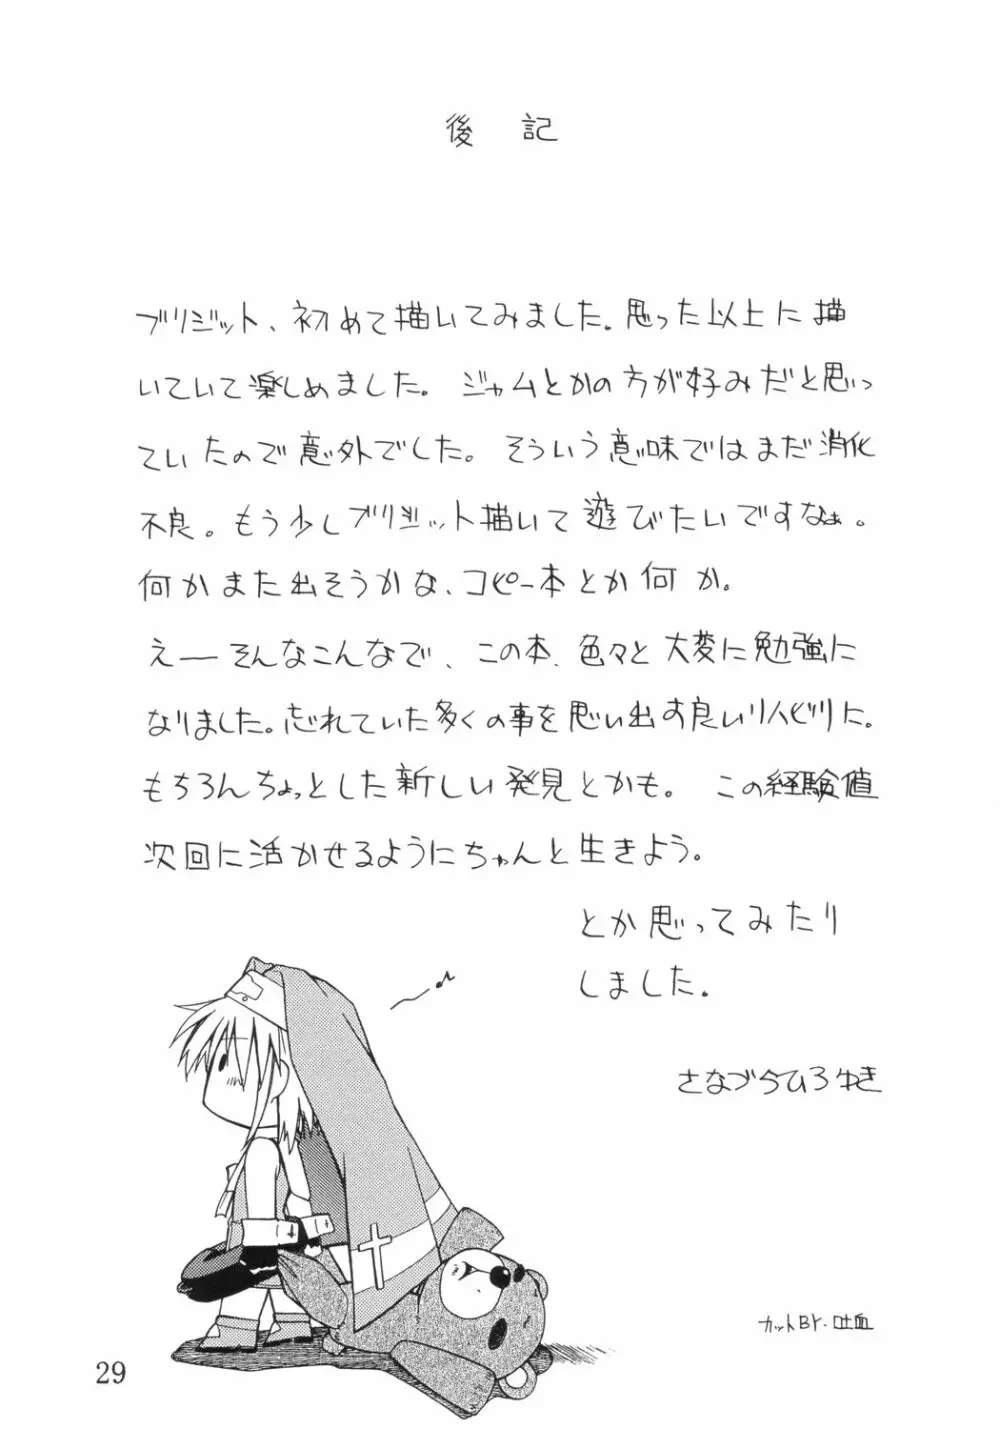 後記
ブリジット、初めて描いてみました。思った以上に描
いていて楽しめました。ジャムとかの方が好みだと思っ
ていたので意外でした。そういう意味ではまだ消化
不良。もう少しブリジット描いて遊びたいですなぁ。
何かまた出そうかな、コピー本とか何か。
えーそんなこんなで、この本、色々と大変に勉強に
なりました。忘れていた多くの事を思い出す良いリハビリに。
もちろんちょっとした新しい発見とかも。この経験値
次回に活かせるようにちゃんと生きよう。
とか思ってみたり
しました。
さなづらひろゆき
カットBY.吐血
29